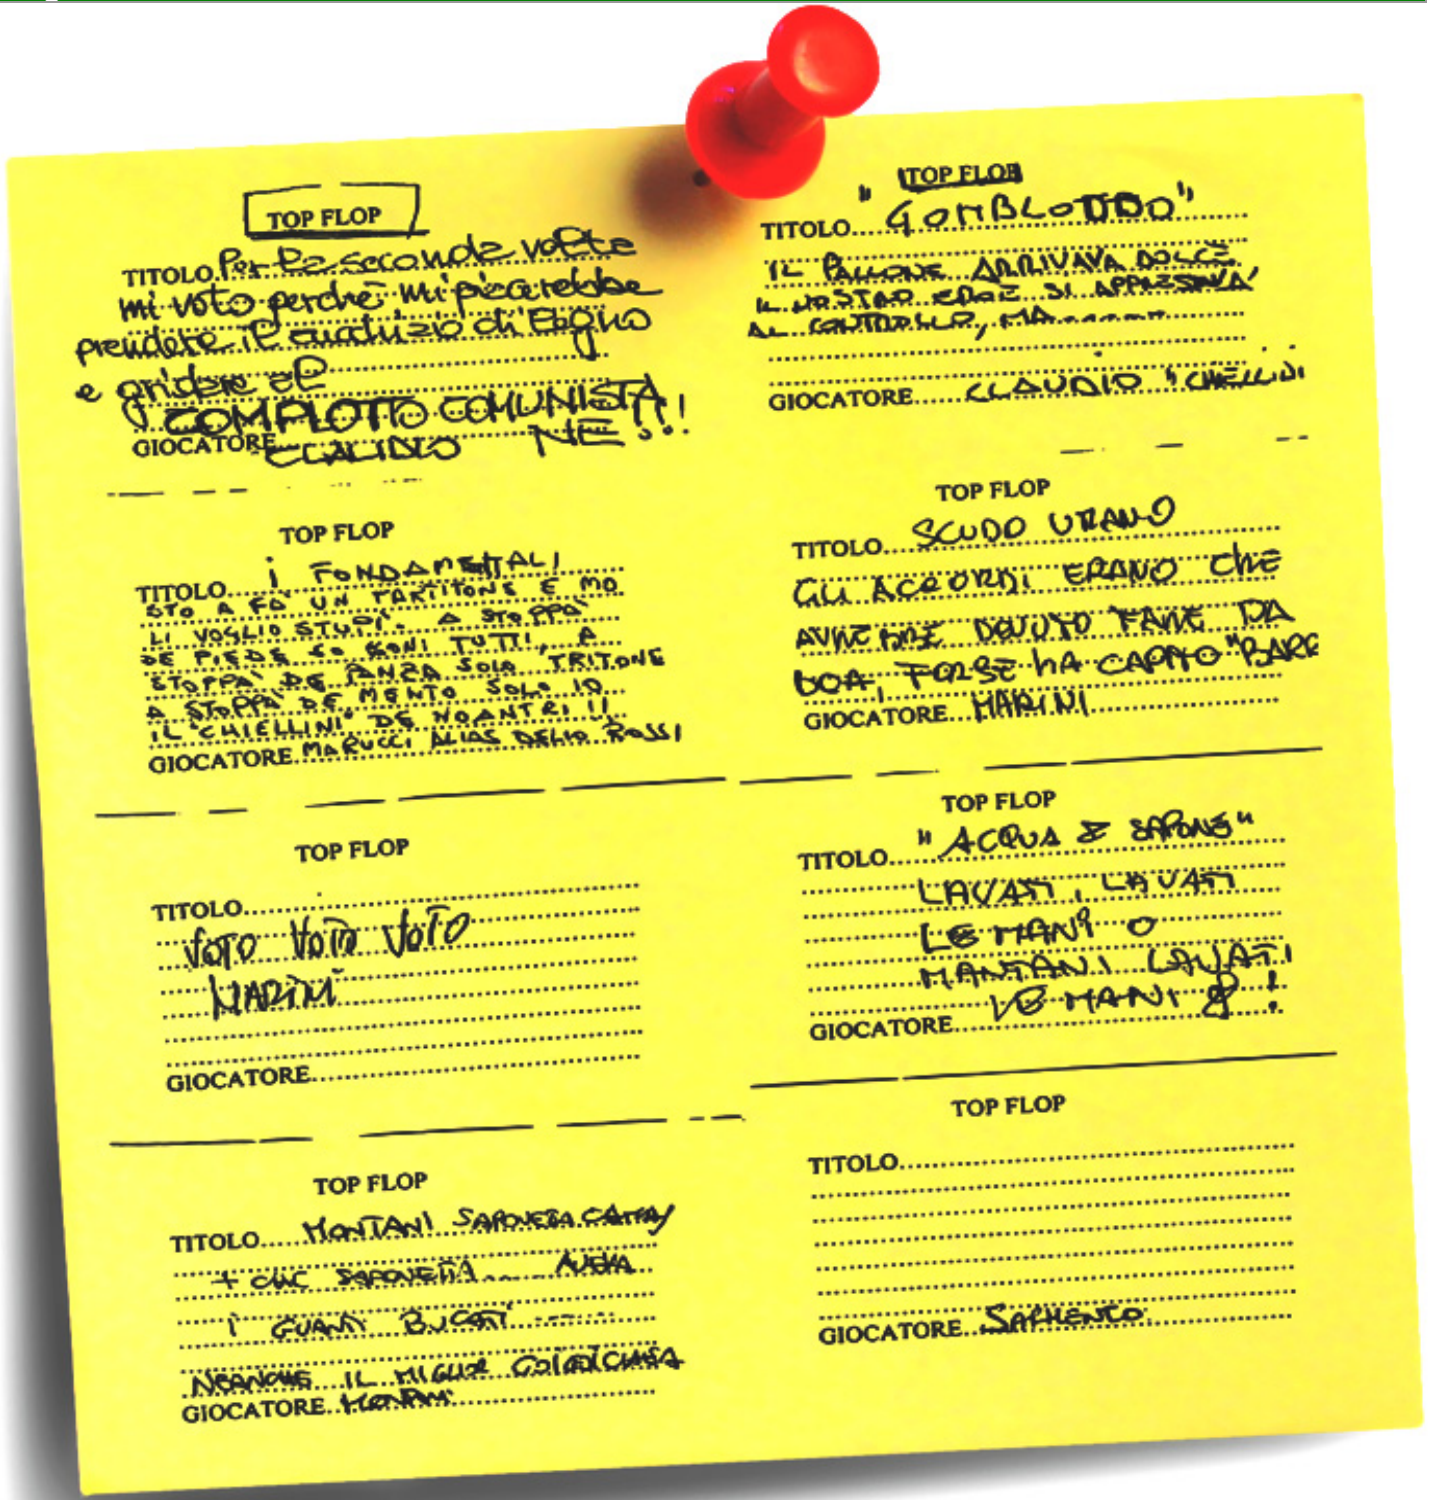 TOP FLOP
TITOLO Per la seconda volta
mi voto perché mi piacerebbe
prendere il giudizio di Fogno
e gridare al
COMPLOTTO COMUNISTA
GIOCATORE CLAUDIO NE!!!
TOP FLOP
TITOLO i FONDAMENTALI
STO A FA' UN PARTITONE E MO
LI VOGLIO STUPI'. A STOPPA'
DE PIEDE SO BONI TUTTI, A
STOPPA' DE PANZA SOLO TRITONE
A STOPPA' DE MENTO SOLO IO
IL "CHIELLINI" DE NOANTRI!!
GIOCATORE MARUCCI ALIAS DELIO ROSSI
TOP FLOP
TITOLO
VOTO VOTO VOTO
MARINI
GIOCATORE
TOP FLOP
TITOLO MONTANI SAPONETTA
+ CHE SAPONETTA AVEVA
i GUANTI BUCATI
NEANCHE IL MIGLIOR
GIOCATORE MONTANI
TOP FLOP
TITOLO "GOMBLOTDDO"
IL PALLONE ARRIVAVA DOLCE
IL NOSTRO EROE SI APPRESTAVA
AL CONTROLLO, MA
GIOCATORE CLAUDIO "CHIELLINI
TOP FLOP
TITOLO SCUDO UMANO
GLI ACCORDI ERANO CHE
AVREBBE DOVUTO FARE DA
BOA, FORSE HA CAPITO "BARR
GIOCATORE MARINI
TOP FLOP
TITOLO "ACQUA E SAPONE"
LAVATI, LAVATI
LE MANI O
MANTANI LAVATI
LE MANI !
GIOCATORE
TOP FLOP
TITOLO
GIOCATORE SARMENTO